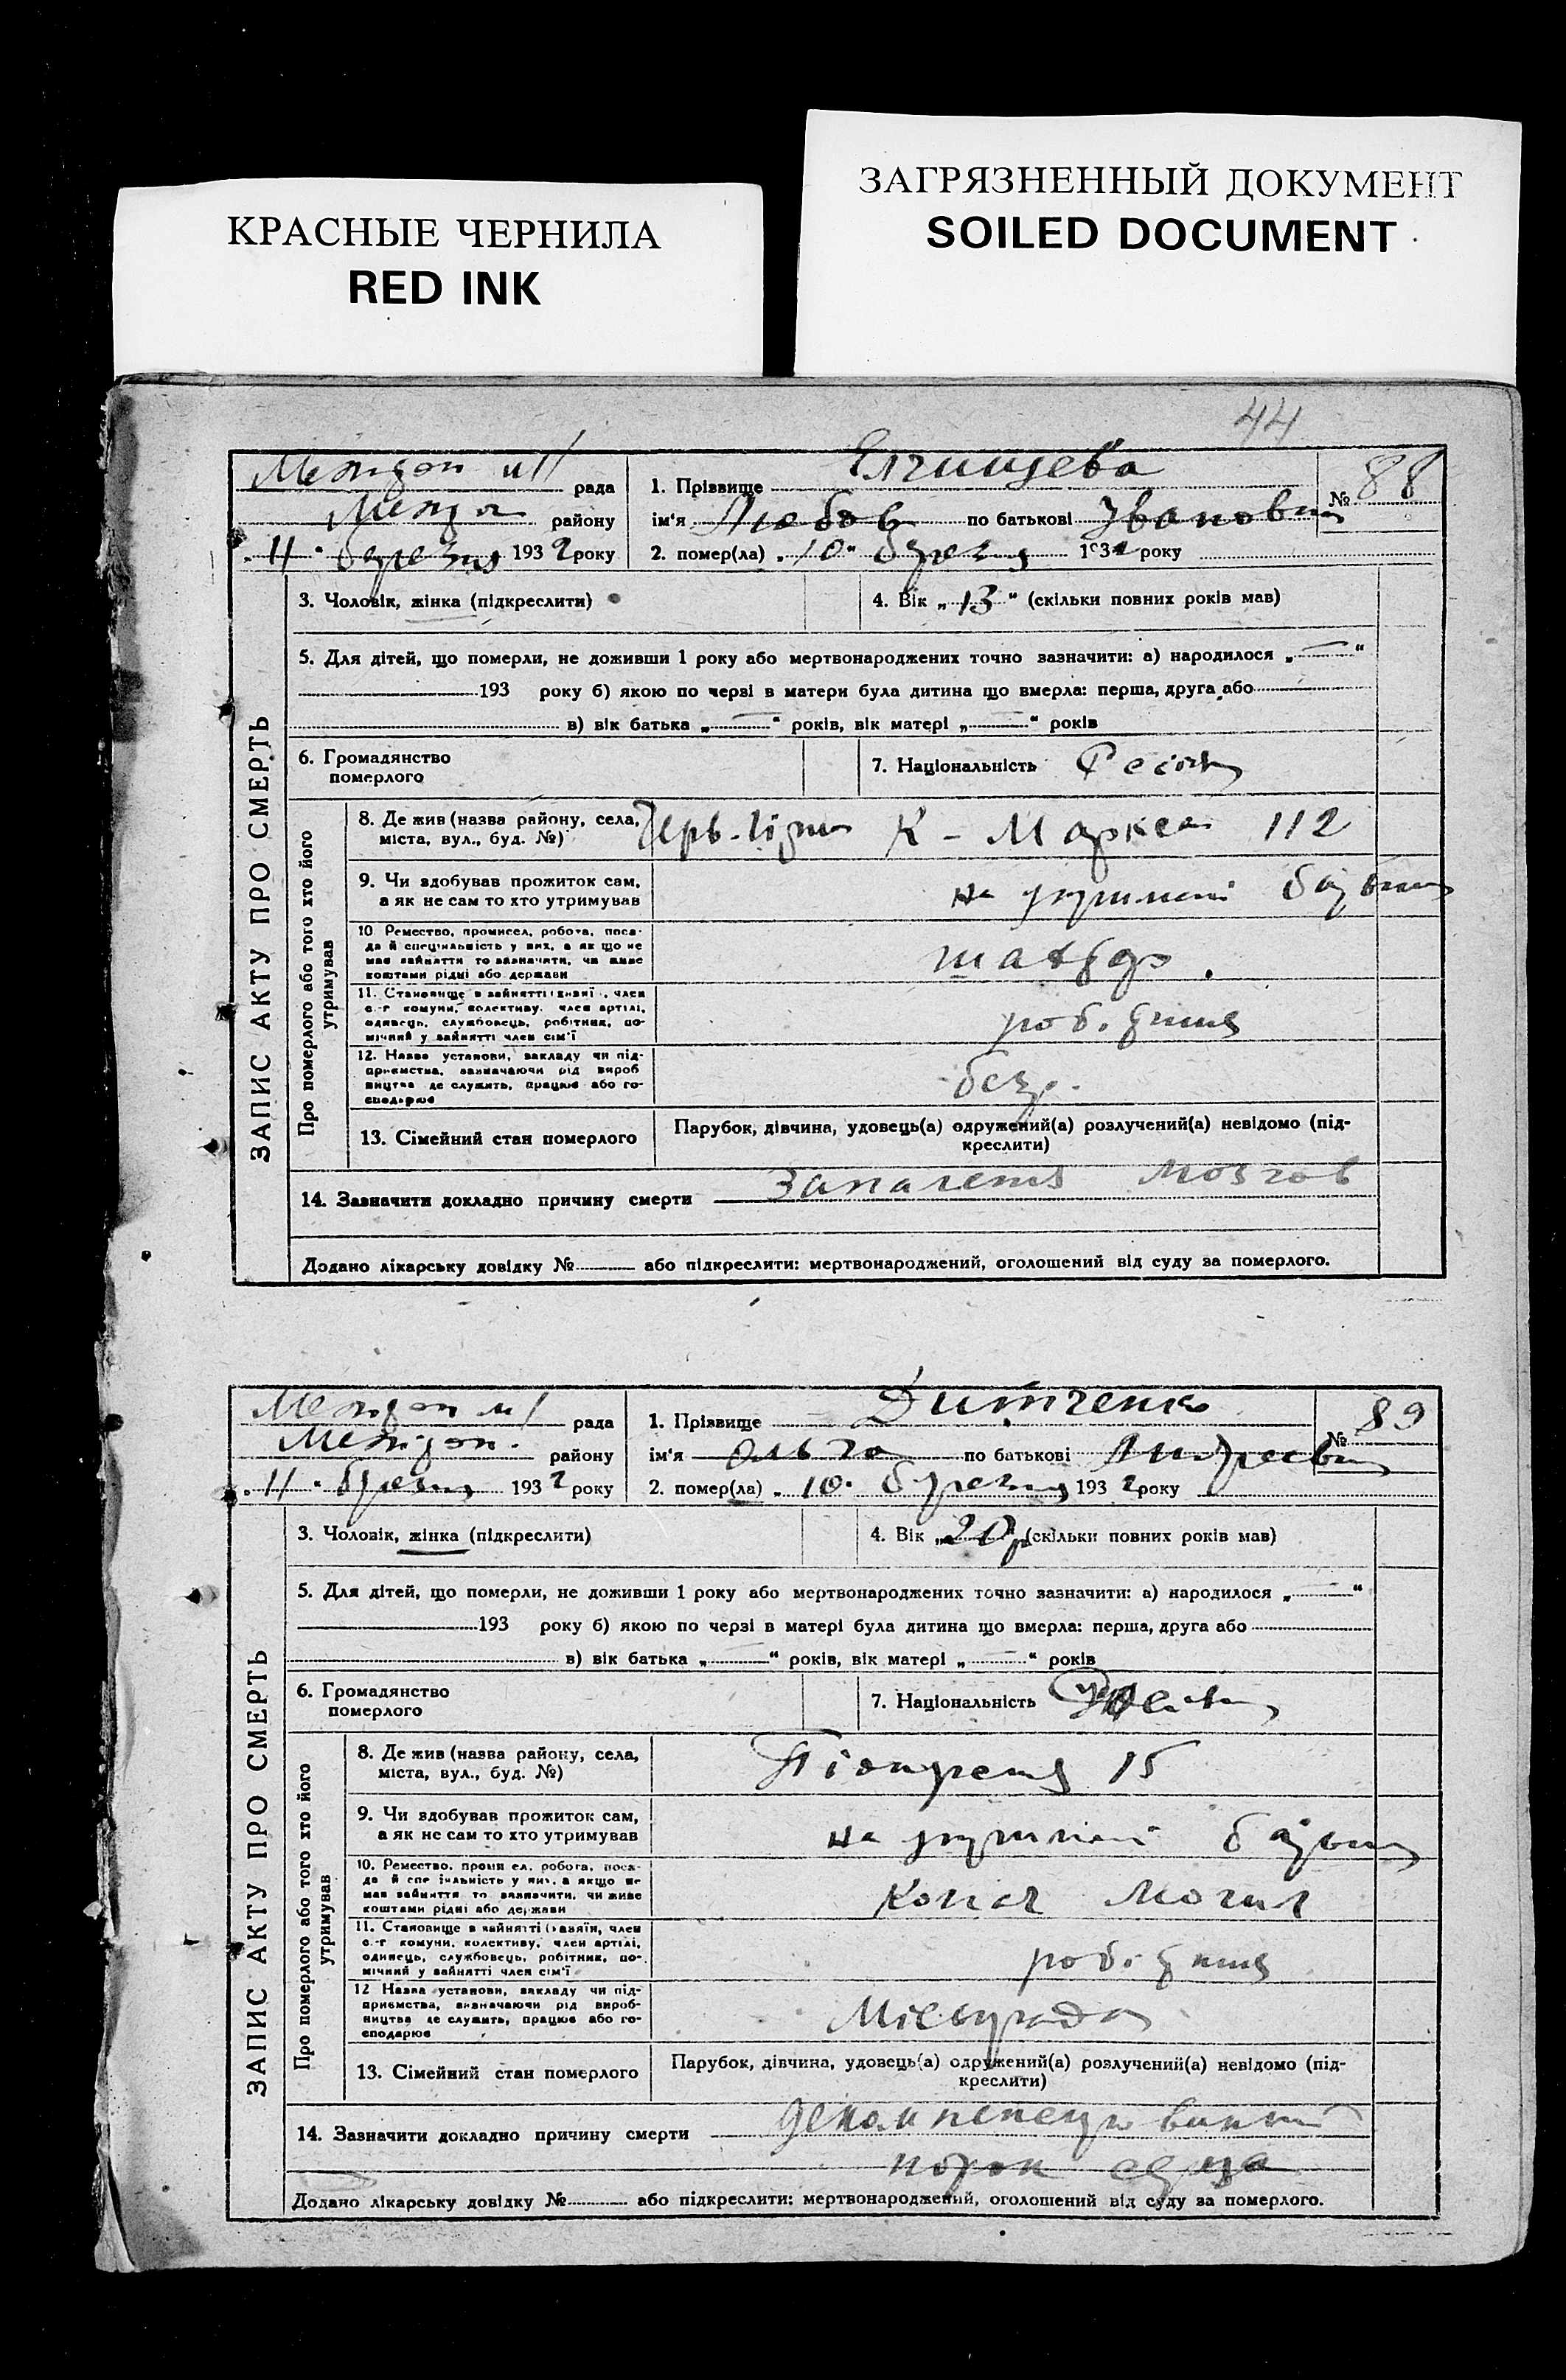 КРАСНЫЕ ЧЕРНИЛА
RED INK
ЗАГРЯЗНЕННЫЙ ДОКУМЕНТ
SOILED DOCUMENT
44
ЗАПИС АКТУ ПРО СМЕРТЬ
рада
району
11 березня 1932 року
1. Прізвище
№ 88
ім'я Любов по батькові Івановна
2. помер(ла) „10" березня 1932 року
3. Чоловік, жінка (підкреслити)
4. Вік „13" (скільки повних років мав)
5. Для дітей, що померли, не доживши 1 року або мертвонароджених точно зазначити: а) народилося „ — "
193 року б) якою по черзі в матери була дитина що вмерла: перша, друга або
в) вік батька „ — " років, вік матері „ — " років
6. Громадянство
померлого
7. Національність
Про померлого або того хто його
утримував
8. Де жив (назва району, села,
міста, вул., буд. №)
К-Маркса 112
9. Чи здобував прожиток сам,
а як не сам то хто утримував
на утриманні батьків
10 Ремество, промисел, робота, поса-
да й спеціяльність у них, а як що не
мав зайняття то зазначити, чи живе
коштами рідні або держави
11. Становище в зайнятті хазяїн, член
с.-г комуни, колективу, член артілі,
одинець, службовець, робітник, по-
мічний у зайнятті член сім'ї
12. Назва установи, закладу чи під-
приємства, зазначаючи рід вироб
ництва де служить, працює або го-
сподарює
13. Сімейний стан померлого
Парубок, дівчина, удовець(а) одружений(а) розлучений(а) невідомо (під-
креслити)
14. Зазначити докладно причину смерти
Запалення мозгов
Додано лікарську довідку № або підкреслити: мертвонароджений, оголошений від суду за померлого.
ЗАПИС АКТУ ПРО СМЕРТЬ
рада
району
11 березня 1932 року
1. Прізвище
№ 89
ім'я Ольга по батькові Андреевна
2. помер(ла) „10" березня 1932 року
3. Чоловік, жінка (підкреслити)
4. Вік „20р" (скільки повних років мав)
5. Для дітей, що померли, не доживши 1 року або мертвонароджених точно зазначити: а) народилося „ — "
193 року б) якою по черзі в матері була дитина що вмерла: перша, друга або
в) вік батька „ — " років, вік матері „ — " років
6. Громадянство
померлого
7. Національність
Про померлого або того хто його
утримував
8. Де жив (назва району, села,
міста, вул., буд. №)
15
9. Чи здобував прожиток сам,
а як не сам то хто утримував
на утриманні батьків
10. Ремество, промисел, робота, поса-
да й спеціяльність у них, а якщо не
мав зайняття то зазначити, чи живе
коштами рідні або держави
Копач могил
11. Становище в зайнятті (хазяїн, член
с.-г комуни, колективу, член артілі,
одинець, службовець, робітник, по-
мічний у зайнятті член сім'ї
12 Назва установи, закладу чи під-
приємства, зазначаючи рід вироб-
ництва де служить, працює або го-
сподарює
Міськрада
13. Сімейний стан померлого
Парубок, дівчина, удовець(а) одружений(а) розлучений(а) невідомо (під-
креслити)
14. Зазначити докладно причину смерти
порок
Додано лікарську довідку № або підкреслити: мертвонароджений, оголошений від суду за померлого.